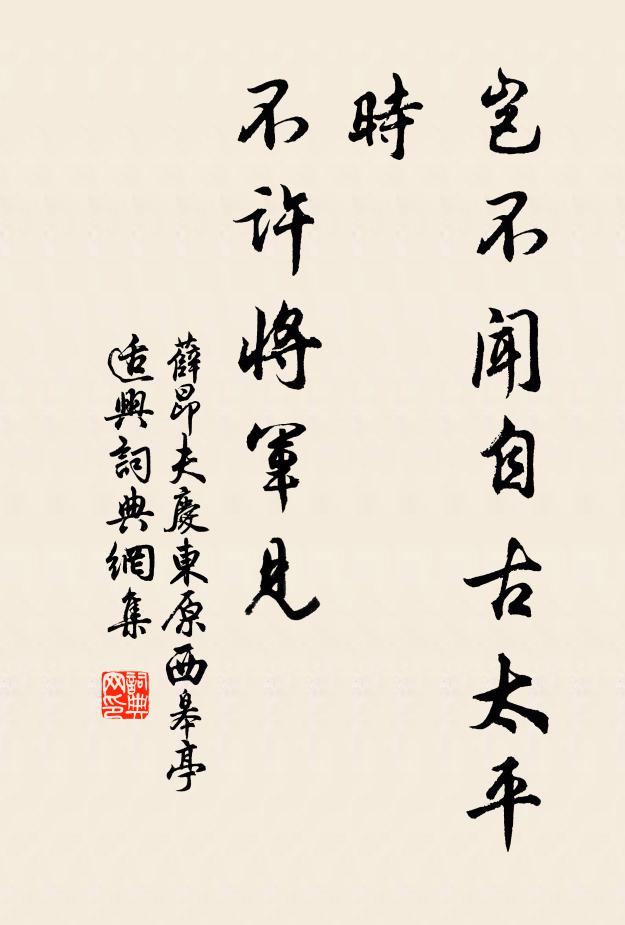 豈不聞自古太平
時
不許將軍見
薛昂夫慶東原西皋亭
适興詞典網集
詞典网印